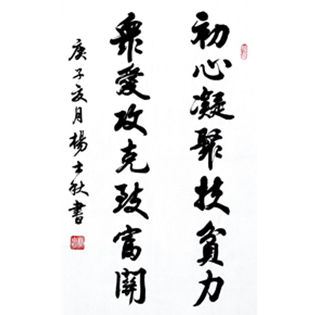 初心凝聚扶貧力
眾愛攻克致富關
庚子夏月楊士秋書